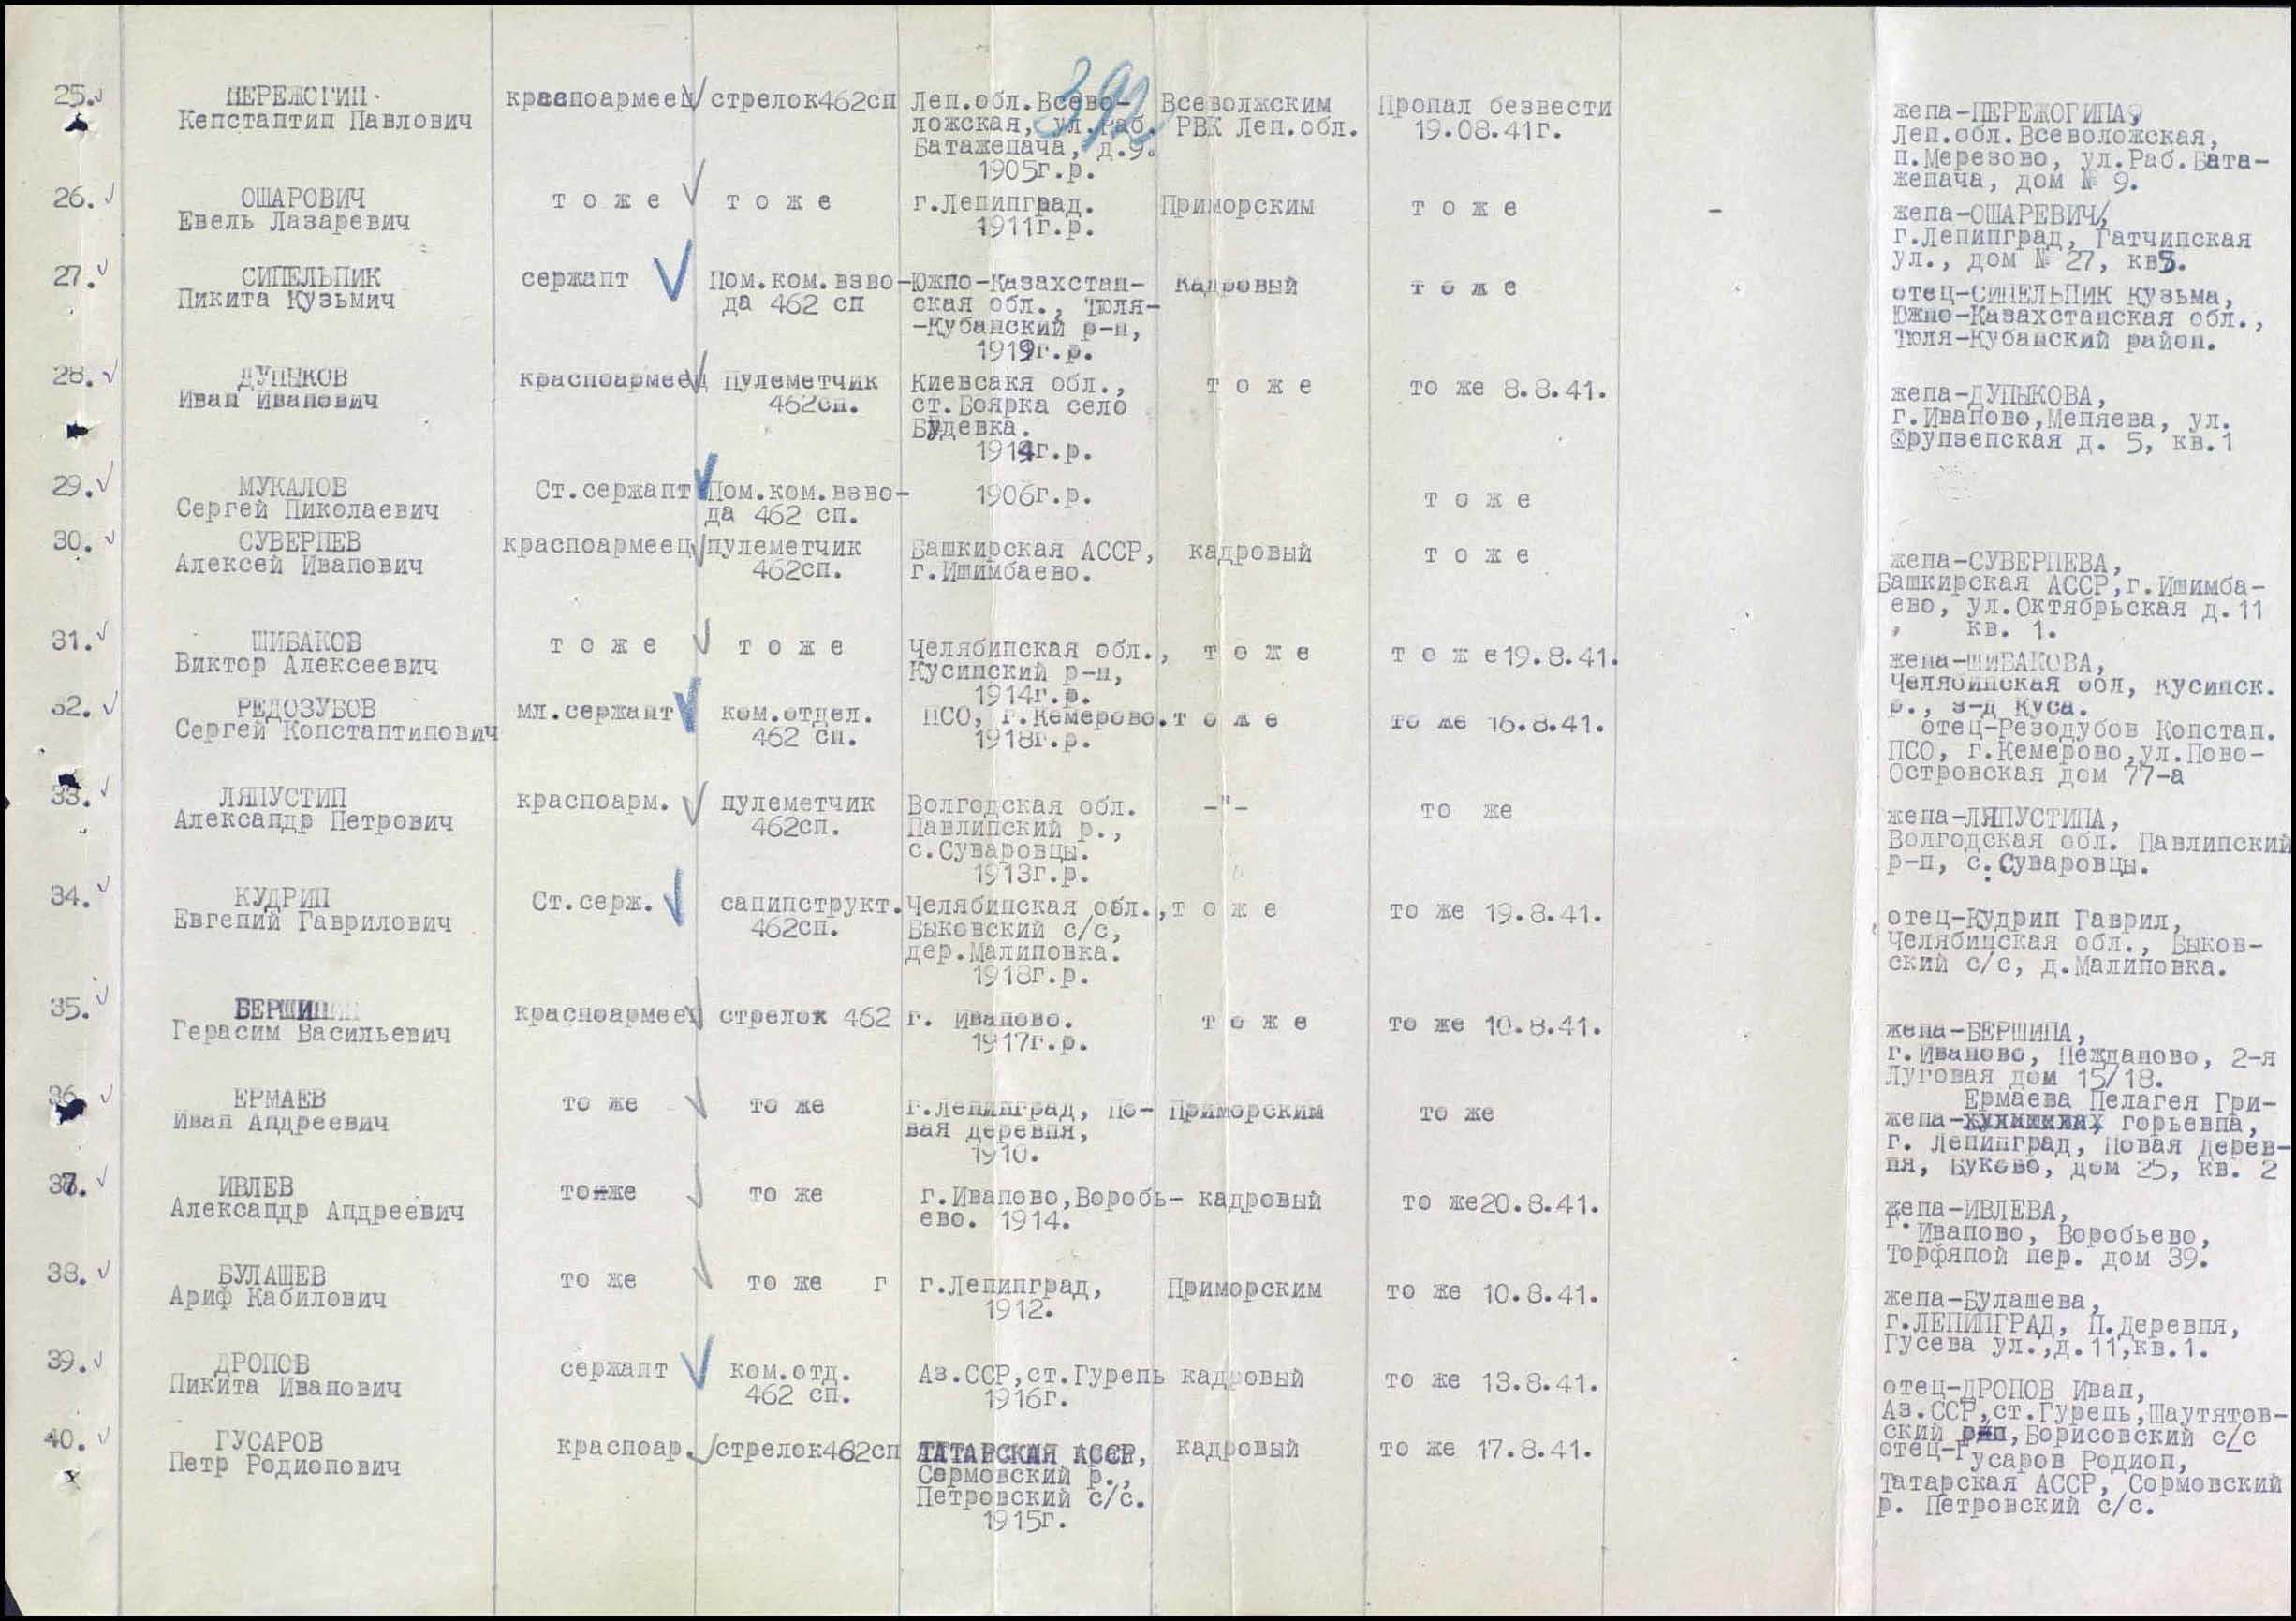 392
25.
ПЕРЕЖОГИП
Кепстаптип Павлович
краспоармеец
стрелок462сп
Леп.обл.Всево-
ложская, ул.Раб.
Батажепача, д.9.
1905г.р.
Всеволжским
РВК Леп.обл.
Пропал безвести
19.08.41г.
жепа-ПЕРЕЖОГИПА,
Леп.обл.Всеволожская,
п.Мерезово, ул.Раб.Бата-
жепача, дом № 9.
26.
ОШАРОВИЧ
Евель Лазаревич
т о ж е
т о ж е
г.Лепипград.
1911г.р.
Приморским
т о ж е
-
жепа-ОШАРЕВИЧ,
г.Лепипград, Гатчипская
ул., дом № 27, кв5.
27.
СИПЕЛЬПИК
Пикита Кузьмич
сержапт
Пом.ком.взво-
да 462 сп
Южпо-Казахстап-
ская обл., Тюля-
-Кубапский р-п,
1919г.р.
кадровый
т о ж е
отец-СИПЕЛЬПИК Кузьма,
Южпо-Казахстапская обл.,
Тюля-Кубапский райоп.
28.
ДУПЫКОВ
Ивап Ивапович
краспоармеец
Пулеметчик
462сп.
Киевсакя обл.,
ст.Боярка село
Будевка.
1914г.р.
т о ж е
то же 8.8.41.
жепа-ДУПЫКОВА,
г.Ивапово,Мепяева, ул.
Фрупзепская д. 5, кв.1
29.
МУКАЛОВ
Сергей Пиколаевич
Ст.сержапт
Пом.ком.взво-
да 462 сп.
1906г.р.
т о ж е
30.
СУВЕРПЕВ
Алексей Ивапович
краспоармеец
пулеметчик
462сп.
Башкирская АССР,
г.Ишимбаево.
кадровый
т о ж е
жепа-СУВЕРПЕВА,
Башкирская АССР,г.Ишимба-
ево, ул.Октябрьская д.11
, кв. 1.
31.
ШИБАКОВ
Виктор Алексеевич
т о ж е
т о ж е
Челябипская обл.,
Кусипский р-п,
1914г.р.
т о ж е
т о ж е19.8.41.
жепа-ШИБАКОВА,
Челябипская обл, Кусипск.
р., з-д Куса.
32.
РЕДОЗУБОВ
Сергей Копстаптипович
мл.сержапт
ком.отдел.
462 сп.
ПСО, г.Кемерово.
1918г.р.
т о ж е
то же 16.8.41.
отец-Резодубов Копстап.
ПСО, г.Кемерово,ул.Пово-
Островская дом 77-а
33.
ЛЯПУСТИП
Алексапдр Петрович
краспоарм.
пулеметчик
462сп.
Волгодская обл.
Павлипский р.,
с.Суваровцы.
1913г.р.
-"-
то же
жепа-ЛЯПУСТИПА,
Волгодская обл. Павлипский
р-п, с.Суваровцы.
34.
КУДРИП
Евгепий Гаврилович
Ст.серж.
сапипструкт.
462сп.
Челябипская обл.,
Быковский с/с,
дер.Малиповка.
1918г.р.
т о ж е
то же 19.8.41.
отец-Кудрип Гаврил,
Челябипская обл., Быков-
ский с/с, д.Малиповка.
35.
БЕРШИП
Герасим Васильевич
краспоармеец
стрелок 462
г. Ивапово.
1917г.р.
т о ж е
то же 10.8.41.
жепа-БЕРШИПА,
г.Ивапово, Пеждапово, 2-я
Луговая дом 15/18.
36.
ЕРМАЕВ
Ивап Апдреевич
то же
то же
г.Лепипград, По-
вая деревпя,
1910.
Приморским
то же
Ермаева Пелагея Гри-
жепа- горьевпа,
г. Лепипград, Повая Дерев-
пя, Буково, дом 25, кв. 2
37.
ИВЛЕВ
Алексапдр Апдреевич
то же
то же
г.Ивапово,Воробь-
ево. 1914.
кадровый
то же20.8.41.
жепа-ИВЛЕВА,
г.Ивапово, Воробьево,
Торфяпой пер. дом 39.
38.
БУЛАШЕВ
Ариф Кабилович
то же
то же г
г.Лепипград,
1912.
Приморским
то же 10.8.41.
жепа-Булашева,
г.ЛЕПИПГРАД, П.Деревпя,
Гусева ул.,д.11,кв.1.
39.
ДРОПОВ
Пикита Ивапович
сержапт
ком.отд.
462 сп.
Аз.ССР,ст.Гурепь
1916г.
кадровый
то же 13.8.41.
отец-ДРОПОВ Ивап,
Аз.ССР,ст.Гурепь,Шаутятов-
ский р-п,Борисовский с/с
40.
ГУСАРОВ
Петр Родиопович
красноар.
стрелок462сп
ТАТАРСКАЯ АССР,
Сормовский р.,
Петровский с/с.
1915г.
кадровый
то же 17.8.41.
отец-Гусаров Родиоп,
Татарская АССР, Сормовский
р. Петровский с/с.